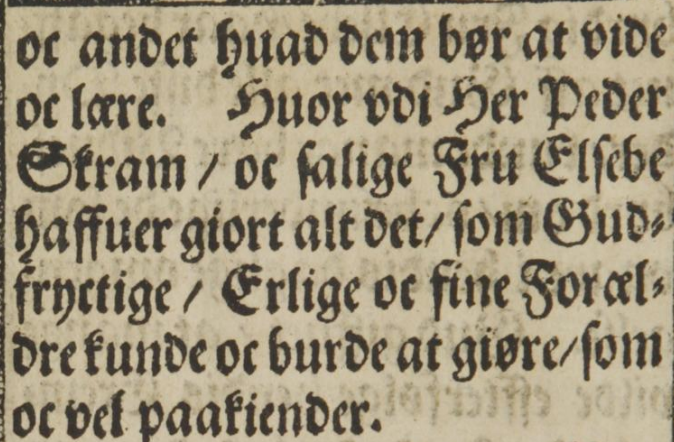 oc andet huad dem bør at vide
oc lære. Huor vdi Her Peder
Skram / oc salige Fru Elsebe
haffuer giort alt det / som Gud⸗
fryctige / Erlige oc fine Foræl⸗
dre kunde oc burde at giøre / som
oc vel paakiender.